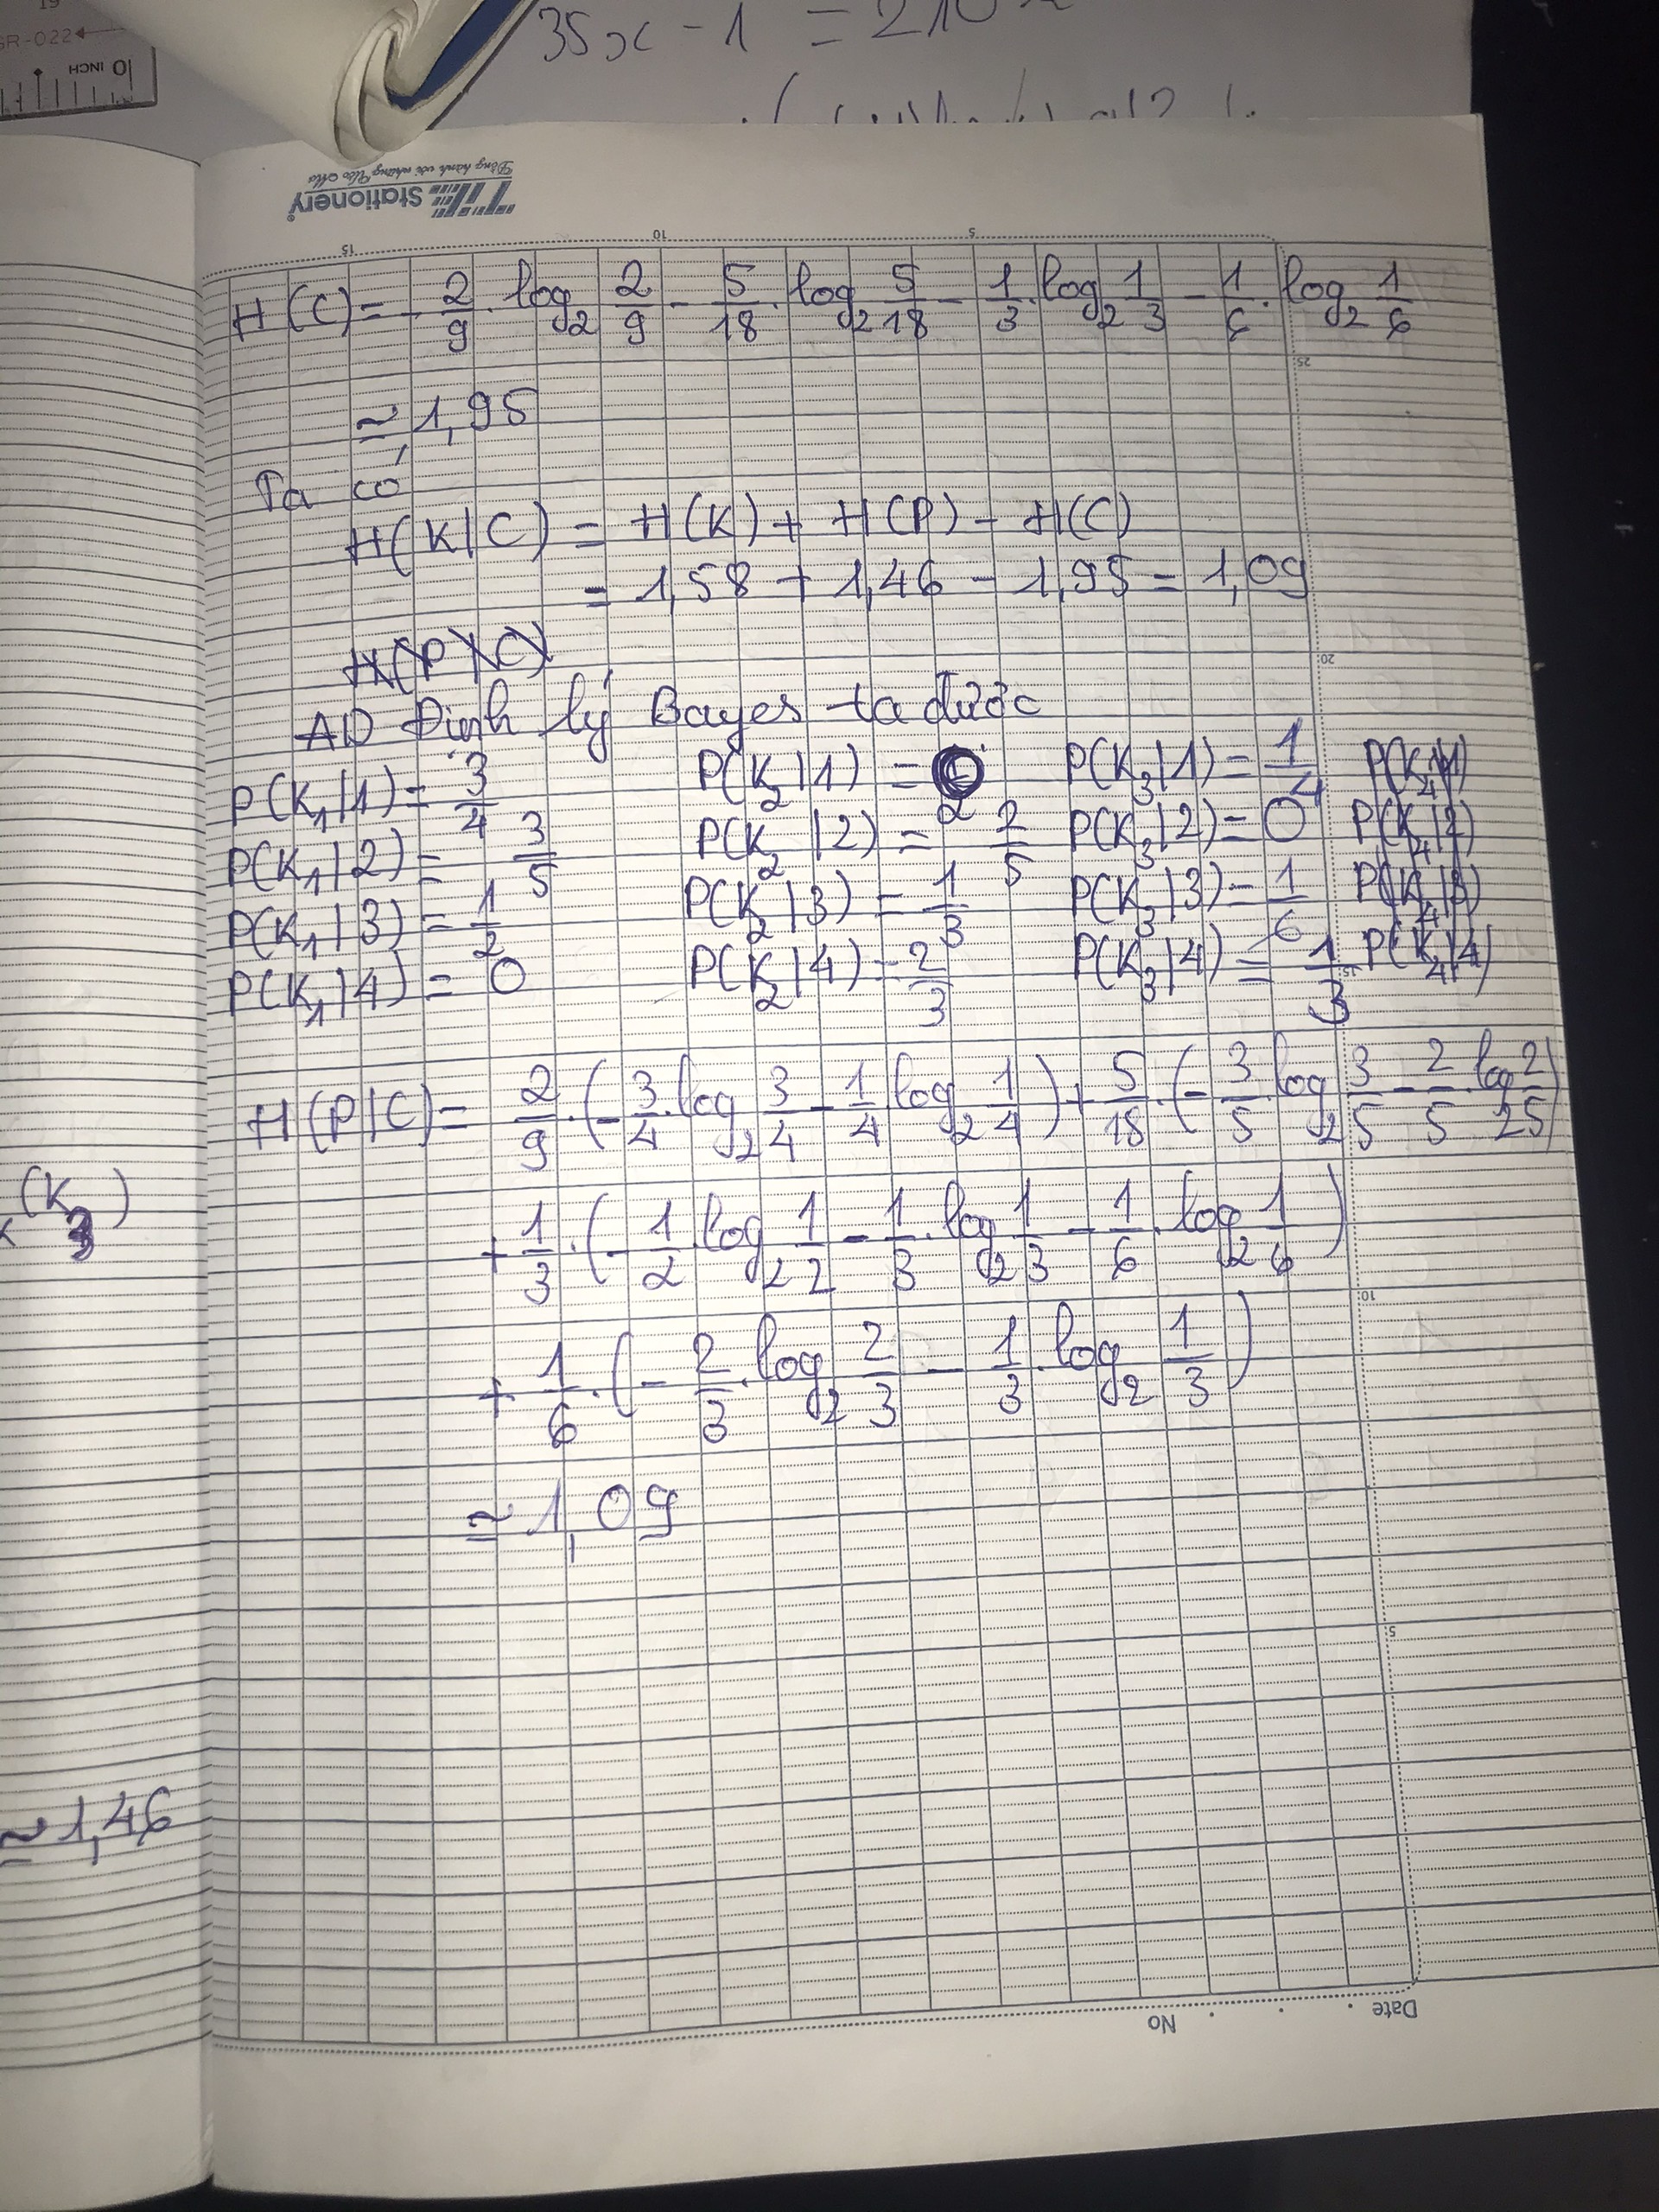 35x - 1 = 210
GR-022
10 INCH
TL Stationery
Đồng hành với những Ước Mơ
15 10 5
H(C) = - 2/9 . log₂ 2/9 - 5/18 . log₂ 5/18 - 1/3 . log₂ 1/3 - 1/6 . log₂ 1/6
25
≃ 1,95
Ta có
H(K|C) = H(K) + H(P) - H(C)
= 1,58 + 1,46 - 1,95 = 1,09
H(P|C)
20
AD Định lý Bayes ta được
P(K₁|1) = 3/4 P(K₂|1) = P(K₃|1) = 1/4 P(K₄|1)
P(K₁|2) = 3/5 P(K₂|2) = 2/5 P(K₃|2) = 0 P(K₄|2)
P(K₁|3) = 1/2 P(K₂|3) = 1/3 P(K₃|3) = 1/6 P(K₄|3)
P(K₁|4) = 0 P(K₂|4) = 2/3 P(K₃|4) = 1/3 P(K₄|4)
15
H(P|C) = 2/9 . (- 3/4 . log₂ 3/4 - 1/4 log₂ 1/4) + 5/18 . (- 3/5 . log₂ 3/5 - 2/5 . log₂ 2/5)
(K₃)
+ 1/3 . (- 1/2 log₂ 1/2 - 1/3 . log₂ 1/3 - 1/6 . log₂ 1/6)
10
+ 1/6 . (- 2/3 . log₂ 2/3 - 1/3 . log₂ 1/3)
≃ 1,09
5
≃ 1,46
No
Date